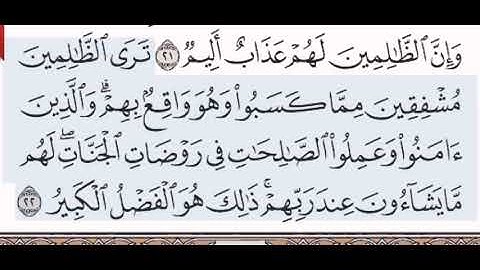 وَإِنَّ ٱلظَّٰلِمِينَ لَهُمْ عَذَابٌ أَلِيمٌ ٢١ تَرَى ٱلظَّٰلِمِينَ
مُشْفِقِينَ مِمَّا كَسَبُوا۟ وَهُوَ وَاقِعٌۢ بِهِمْ ۗ وَٱلَّذِينَ
ءَامَنُوا۟ وَعَمِلُوا۟ ٱلصَّٰلِحَٰتِ فِى رَوْضَاتِ ٱلْجَنَّاتِ ۖ لَهُم
مَّا يَشَآءُونَ عِندَ رَبِّهِمْ ۚ ذَٰلِكَ هُوَ ٱلْفَضْلُ ٱلْكَبِيرُ ٢٢